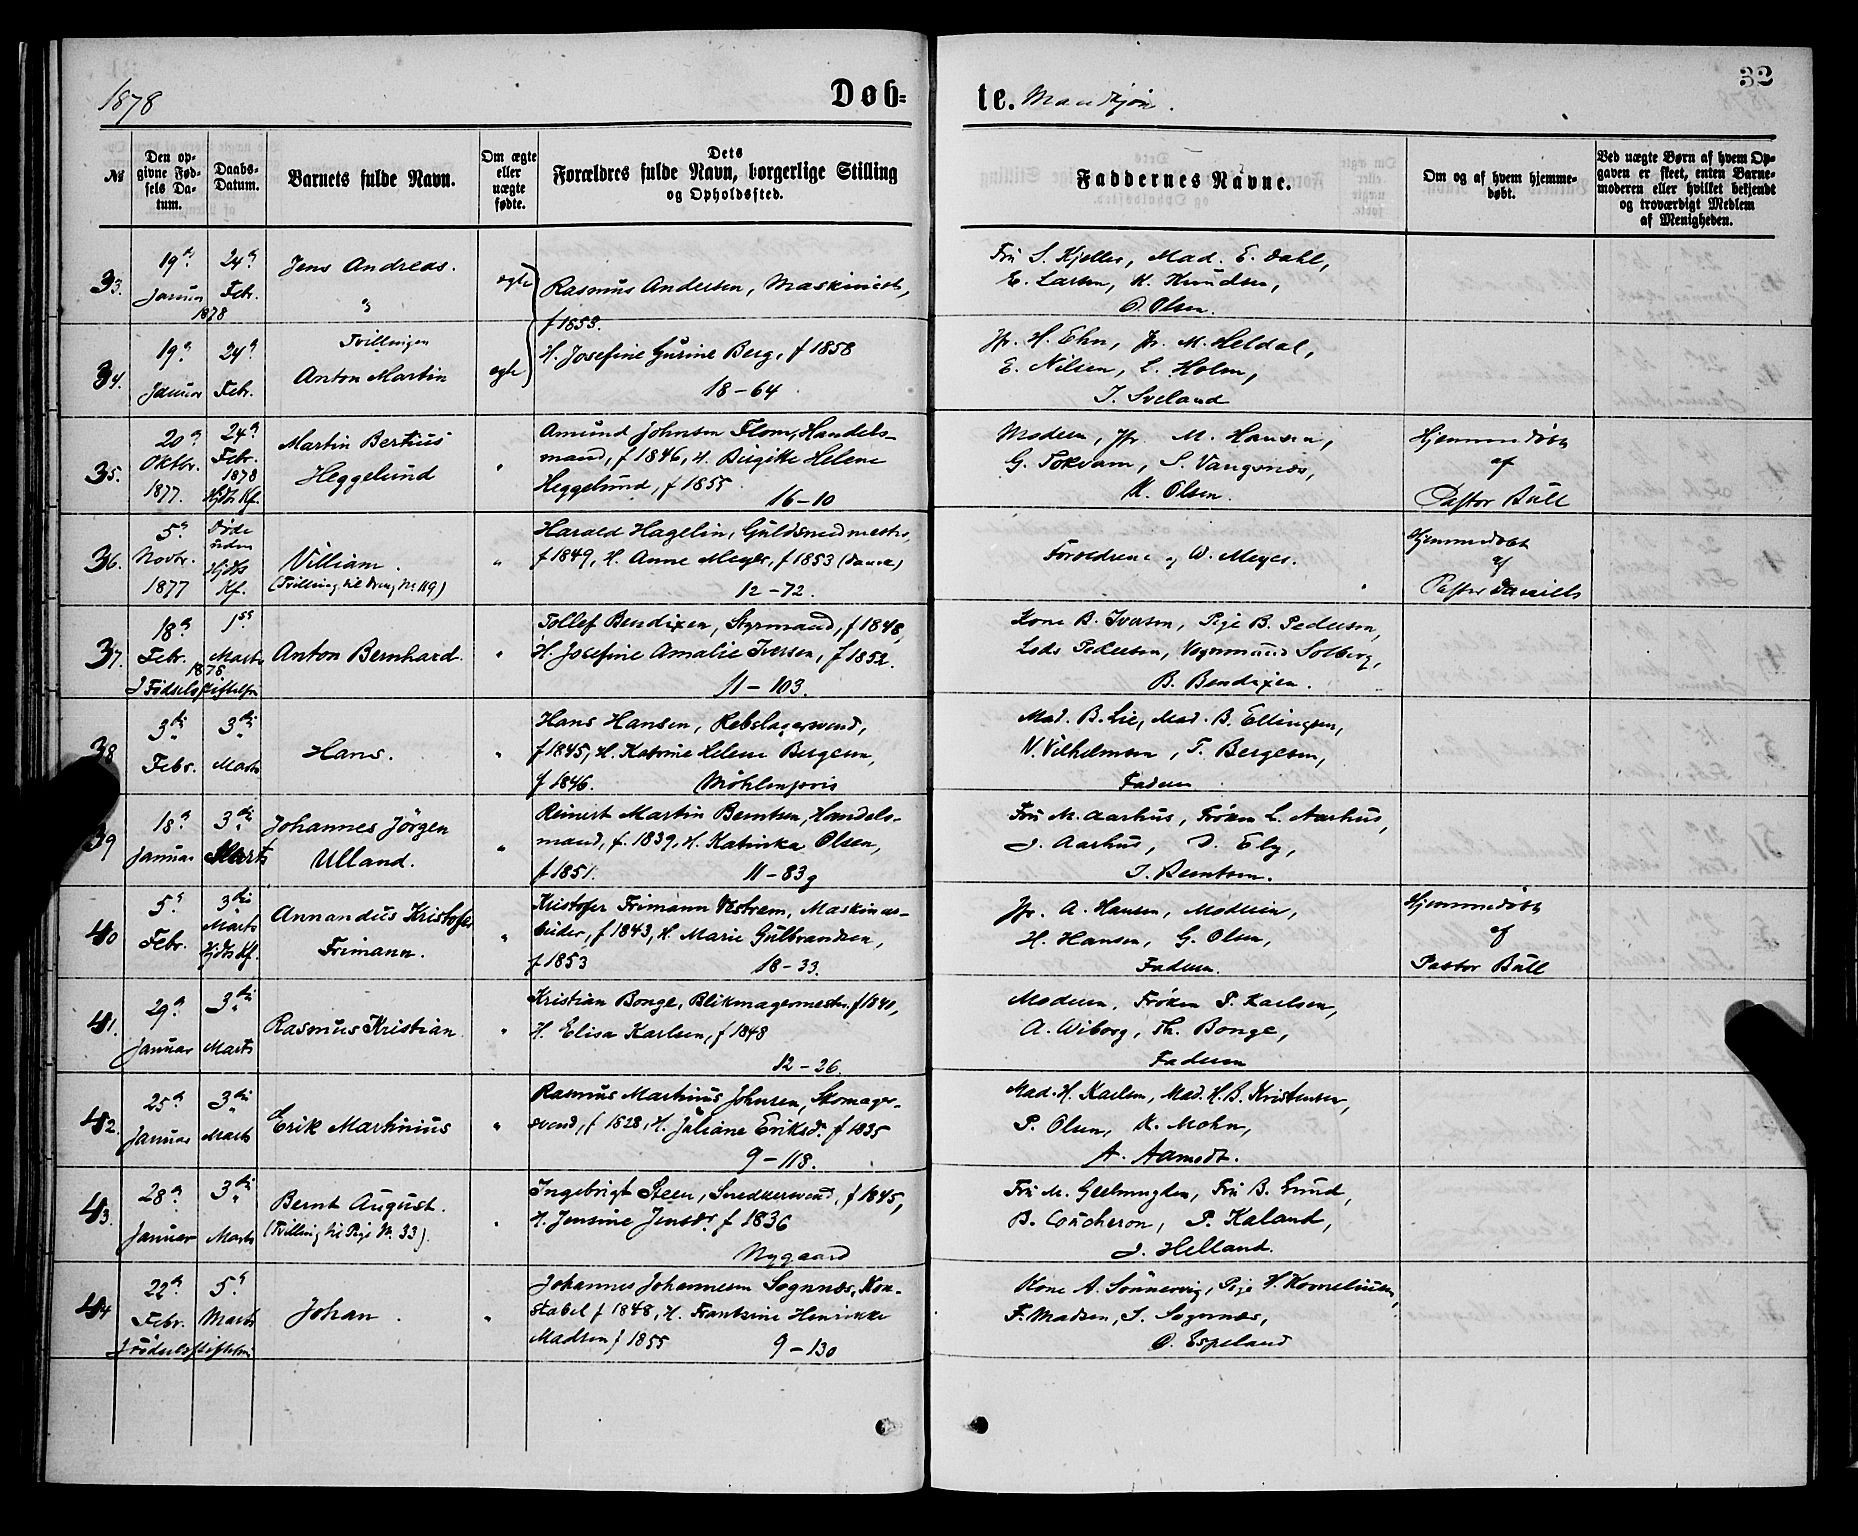 1878
Døb-
te. Mandkjøn.
32
№
Den op-
givne Fød-
sels Da-
tum.
Daabs-
Datum.
Barnets fulde Navn.
Om ægte
eller
uægte
fødte.
Dets
Forældres fulde Navn, borgerlige Stilling
og Opholdssted.
Faddernes Navne.
Om og af hvem hjemme-
døbt.
Ved uægte Børn af hvem Op-
gaven er skeet, enten Barne-
moderen eller hvilket bekjendt
og troværdigt Medlem
af Menigheden.
33.
19de
Januar
24de
Febr.
1878
Jens Andreas.
ægte
Rasmus Andersen, Maskinist,
f 1853.
Fru S. Kjeller, Mad. E. Dahl,
E. Larsen, K. Knudsen,
O. Olsen.
34.
19de
Januar
24de
Febr.
Tvillinger
Anton Martin
ægte
H. Josefine Gurine Berg, f 1858
18-64
Jfr. H. Ehn, Jfr. M. Heldal,
E. Nilsen, L. Holm,
J. Sveland
35.
20de
Oktbr.
1877.
24de
Febr.
1878
Hjdts Kf.
Martin Bertius
Heggelund
"
Amund Johnsen Flom, Handels-
mand, f 1846, H. Birgitte Helene
Heggelund, f 1855
16-10
Moderen, Jfr M. Hansen,
G. Tokvam, S. Vangsnæs,
K. Olsen.
Hjemmedøbt
af
Pastor Bull
36.
5te
Novbr.
1877
Døde
uden
Hjdts
Kf.
Villiam.
(Tvilling til Dreng Nr 119)
"
Harald Hagelin, Guldsmedmester,
f 1849, H. Anne Meyer, f 1853 (Dansk)
12-72.
Forældrene og W. Meyer.
Hjemmedøbt
af
Pastor Daniels
37.
18de
Febr.
1ste
Marts
1878
I Fødselsstiftelsen
Anton Bernhard.
"
Tollef Bendixen, Styrmand, f 1848,
H. Josefine Amalie Iversen, f 1852.
11-103.
Kone B. Iversen, Pige B. Pedersen,
Lods Pedersen, Vognmand Solberg,
B. Bendixen.
38
3die
Febr.
3die
Marts
Hans.
"
Hans Hansen, Rebslagersvend,
f 1845, H. Katrine Helene Bergesen,
f 1846. Möhlenpris
Mad. B. Lie, Mad. B. Ellingsen,
N. Vilhelmsen, T. Bergesen,
Faderen
39
18de
Januar
3die
Marts
Johannes Jörgen
Ulland.
"
Reinert Martin Berntsen, Handels-
mand, f. 1839, H. Katinka Olsen,
f 1851. 11-83g
Fru M. Aarhus, Frøken L. Aarhus,
J. Aarhus, D. Eby,
J. Berntsen.
40
5te
Febr.
3die
Marts
Hjdts Kf.
Annandus Kristofer
Frimann.
"
Kristofer Frimann Vestrem, Maskinar-
beider, f 1843, H. Marie Gulbrandsen,
f 1853 18-33.
Jfr. A. Hansen, Moderen,
H. Hansen, G. Olsen,
Faderen.
Hjemmedøbt
af
Pastor Bull
41.
29de
Januar
3die
Marts
Rasmus Kristian
"
Kristian Bonge, Blikmagermester, f 1840,
H. Elisa Karlsen, f 1848
12-36.
Moderen, Frøken P. Karlsen,
A. Wiborg, Th. Bonge,
Faderen
42.
25de
Januar
3die
Marts
Erik Martinius
"
Rasmus Martinus Johnsen, Skomager-
svend, f 1828, H. Juliane Eriksdr. f 1835
9-118.
Mad. H. Karlsen, Mad. H. B. Kristensen,
P. Olsen, K. Mohn,
A. Aamodt.
43.
28de
Januar
3die
Marts
Bernt August.
(Tvilling til Pige Nr. 33).
"
Ingebrigt Steen, Snedkersvend, f 1845,
H. Jensine Jensdr. f 1836
Nygaard
Fru M. Geelmuyden, Fru B. Lund,
B. Coucheron, P. Kaland,
J. Helland.
44
22de
Febr.
5te
Marts
I Fødselsstiftelsen
Johan.
"
Johannes Johannesen Sognnæs, Kon-
stabel f 1848, H. Frantsine Henrikke
Madsen f 1855 9-130
Kone A. Sönnervig, Pige H. Korneliusen,
F. Madsen, S. Sognnæs,
O. Espeland